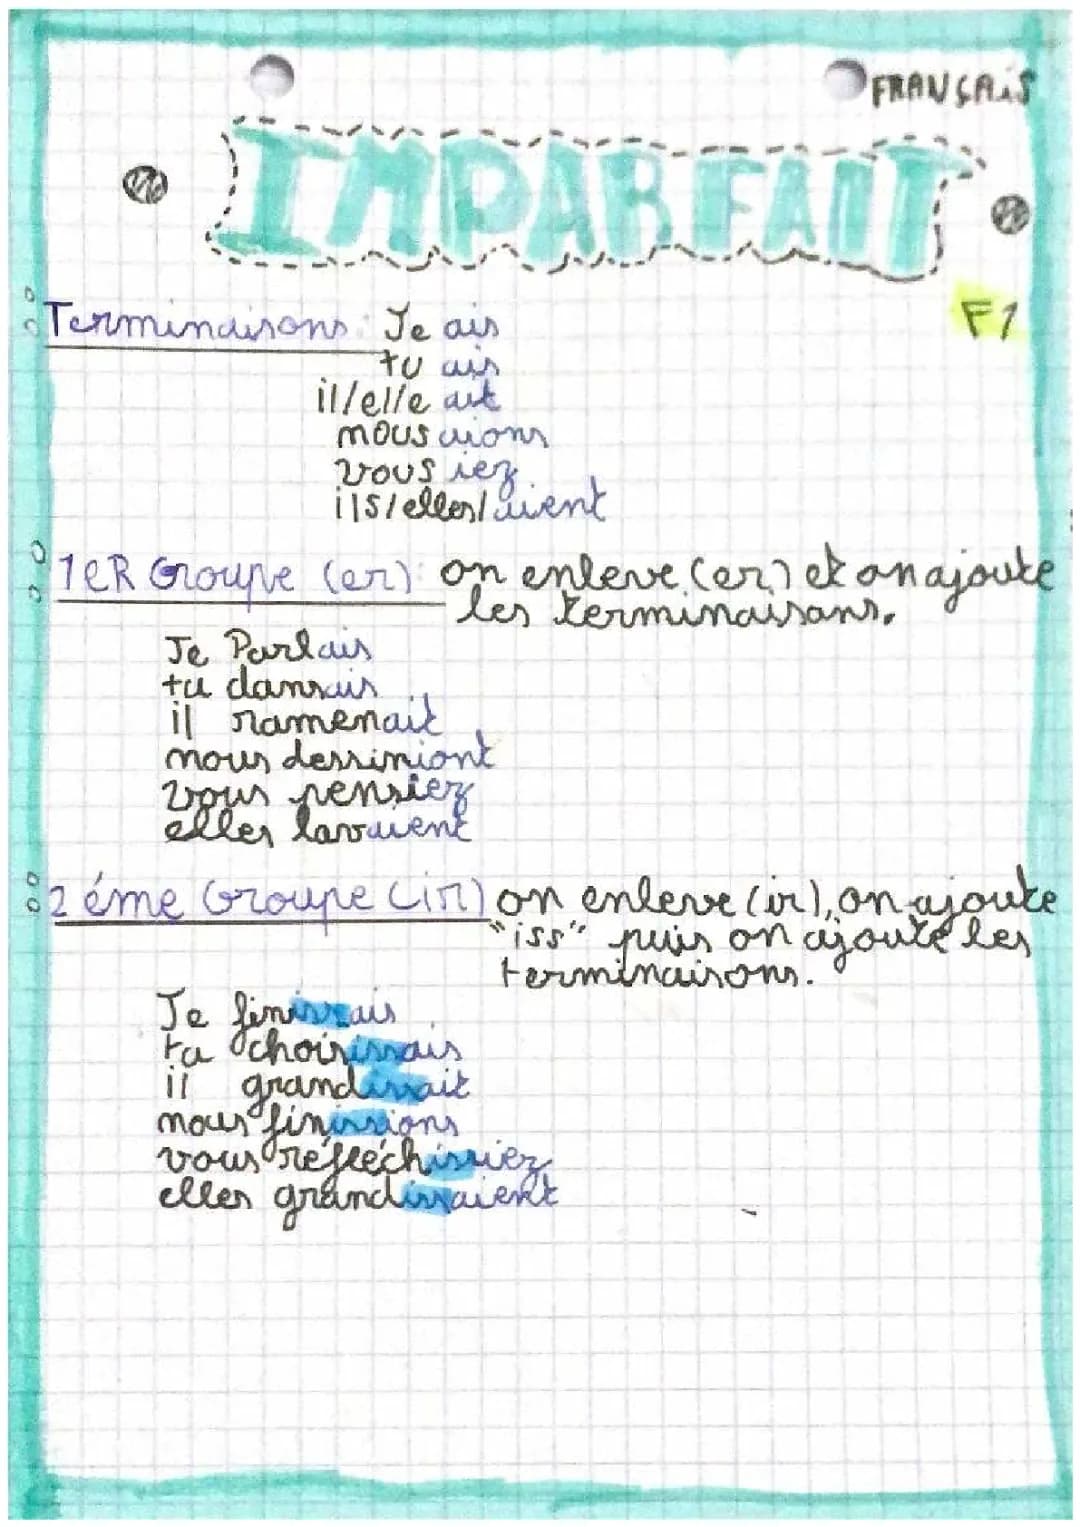 FRANÇAIS
IMPARFAIT
F1
Terminaisons: Je ais
tu ais
il/elle ait
nous aions
vous iez
ils/elles/aient
1ER Groupe (er): on enleve (er) et on ajoute
les terminaisons.
Je Parlais
tu dansais
il ramenait
nous dessiniont
vous pensiez
elles lavaient
2 éme Groupe (ir) on enleve (ir), on ajoute
"iss" puis on ajoute les
terminaisons.
Je finissais
tu choisissais
il grandissait
nous finissions
vous réfléchissiez
elles grandissaient